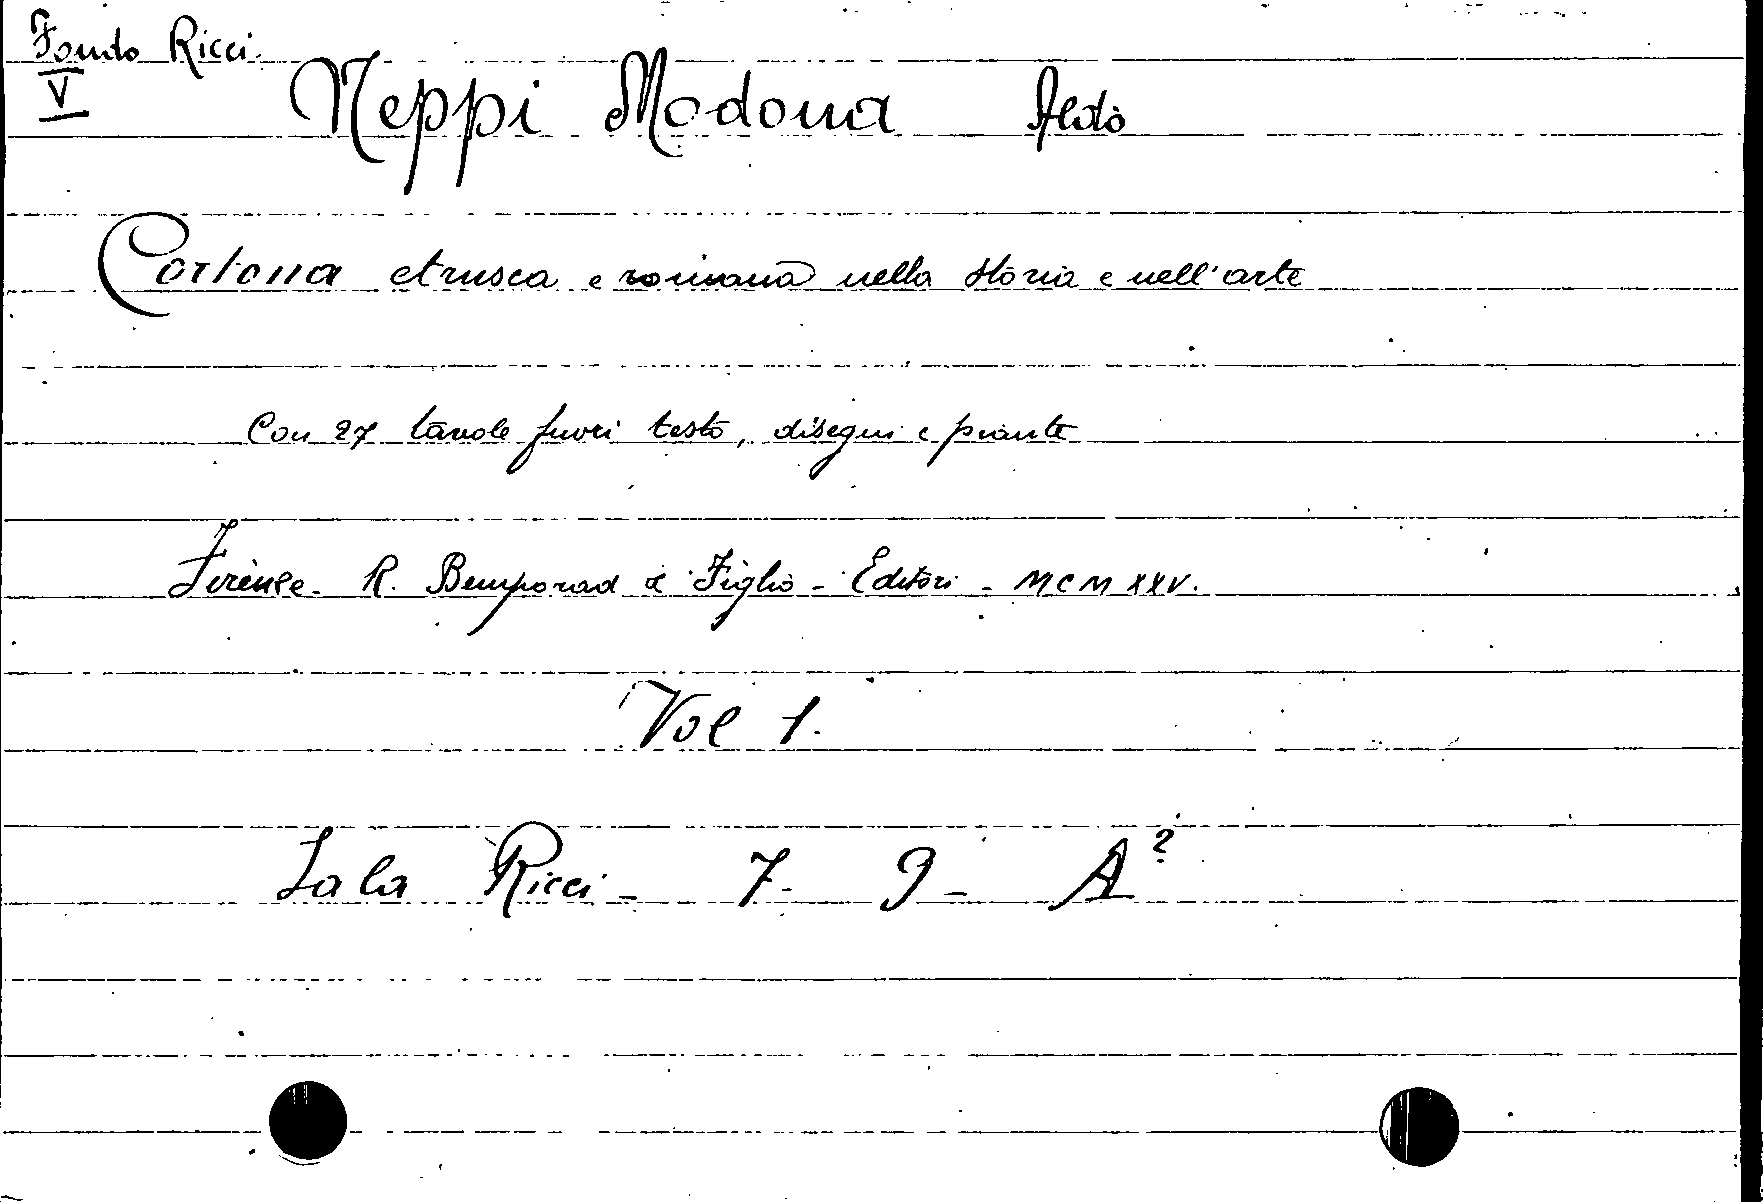 Fondo Ricci
V
Neppi Modona Aldo
Cortona etrusca e romana nella storia e nell'arte
Con 27 tavole fuori testo, disegni e piante
Firenze - R. Bemporad & Figlio - Editori - MCMXXV.
Vol 1.
Sala Ricci - 7 - 9 - A²